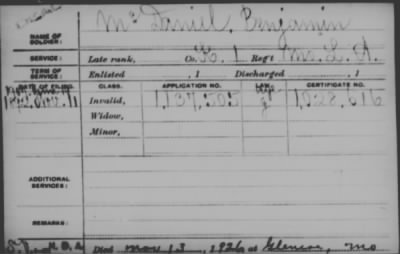 NAME OF SOLDIER: Mc Daniel, Benjamin
SERVICE: Late rank, Co. K. 1 Reg't Mo. L. A.
TERM OF SERVICE: Enlisted , 1 Discharged , 1
DATE OF FILING. CLASS. APPLICATION NO. LAW. CERTIFICATE NO.
Invalid, 1,137,505 1,028,616
Widow,
Minor,
ADDITIONAL SERVICES:
REMARKS:
Died Nov 13, 1926 at Glencoe, Mo